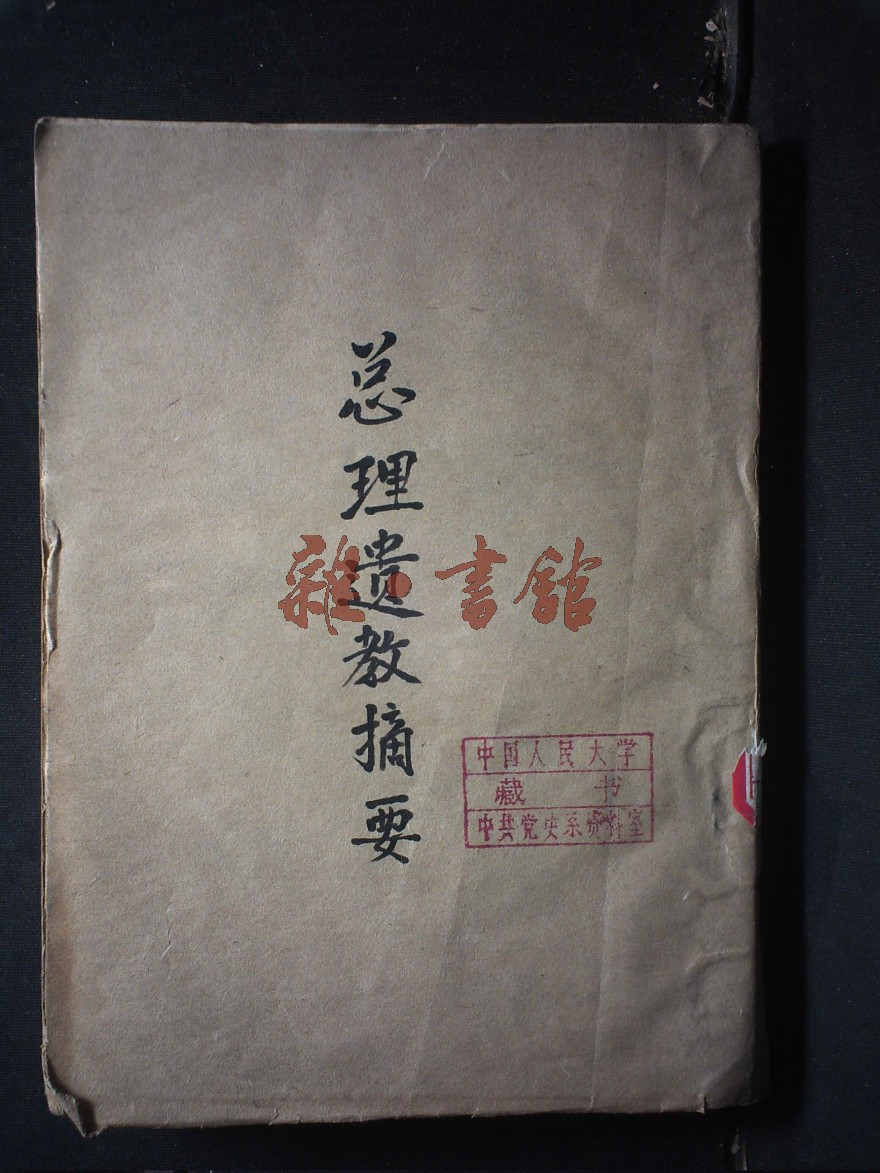 总理遗教摘要
雜·書館
中国人民大学
藏 书
中共党史系资料室